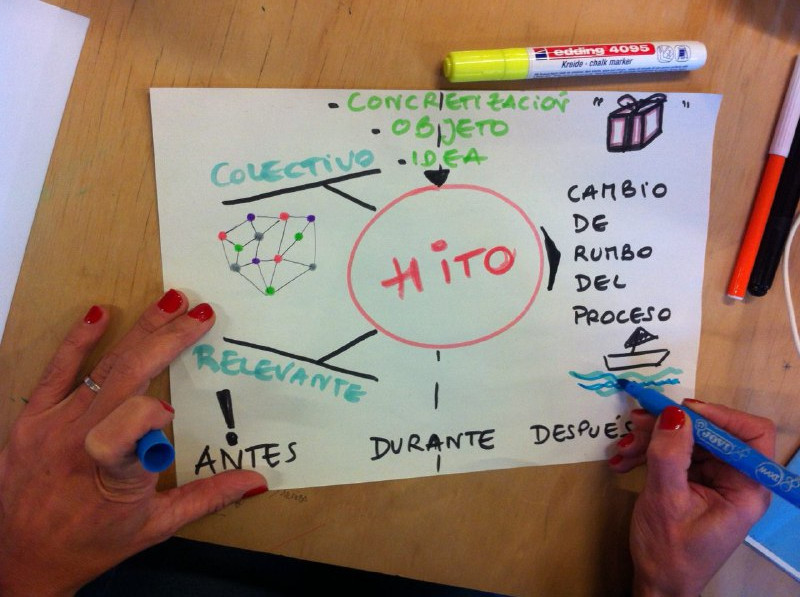 edding 4095
Kreide - chalk marker
- CONCRETIZACIÓN
- OBJETO
- IDEA
" "
COLECTIVO
HITO
CAMBIO
DE
RUMBO
DEL
PROCESO
RELEVANTE
!
ANTES
DURANTE
DESPUÉS